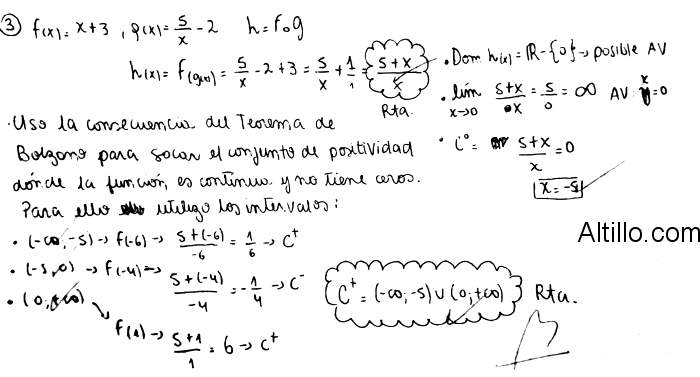 ③ f(x) = x+3 , g(x) = 5/x - 2   h = f∘g
h(x) = f(g(x)) = 5/x - 2 + 3 = 5/x + 1/1 = (5+x)/x
Rta.
• Dom h(x) = ℝ - {0} → posible AV
• lím x→0 (5+x)/x = 5/0 = ∞ AV: x=0
• C° = (5+x)/x = 0
x = -5
• Uso la consecuencia del Teorema de
Bolzano para sacar el conjunto de positividad
dónde la función es continua y no tiene ceros.
Para ello utilizo los intervalos:
• (-∞, -5) → f(-6) → (5+(-6))/-6 = 1/6 → C⁺
• (-5, 0) → f(-4) → (5+(-4))/-4 = -1/4 → C⁻
• (0, +∞) → f(1) → (5+1)/1 = 6 → C⁺
C⁺ = (-∞; -5) ∪ (0; +∞) Rta.
Altillo.com